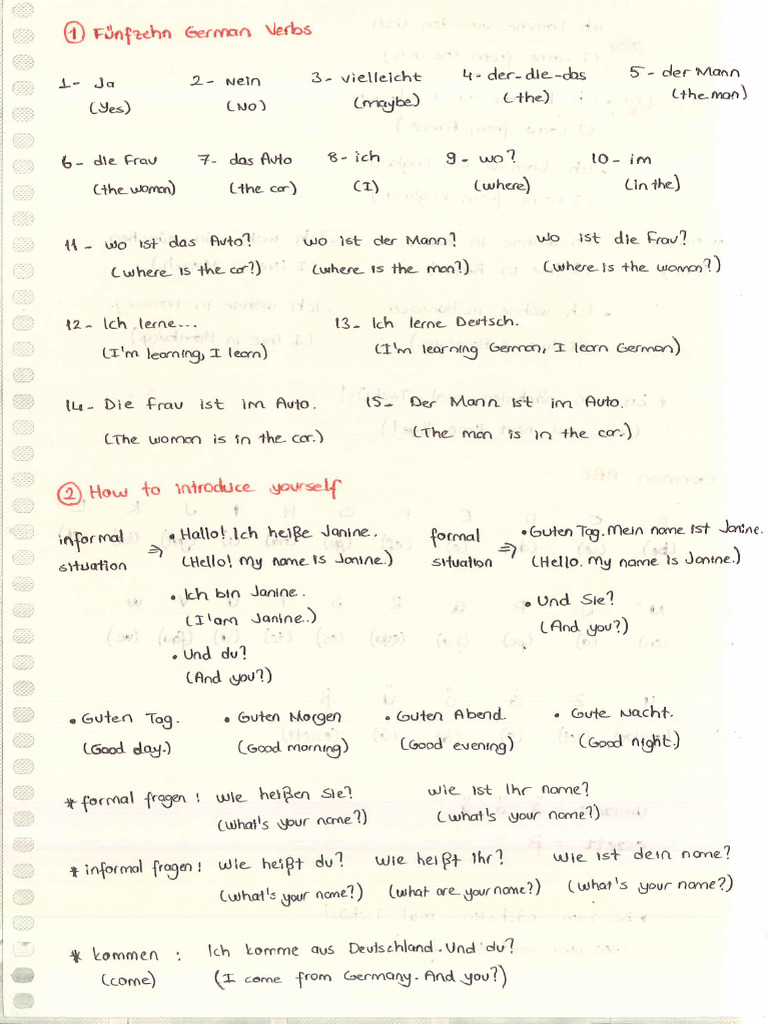 ① Fünfzehn German Verbs
1- Ja 2- Nein 3- vielleicht 4- der-die-das 5- der Mann
(Yes) (No) (maybe) (the) (the man)
6- die Frau 7- das Auto 8- ich 9- wo? 10- im
(the woman) (the car) (I) (where) (in the)
11- wo ist das Auto? wo ist der Mann? wo ist die Frau?
(where is the car?) (where is the man?) (where is the woman?)
12- Ich lerne... 13- Ich lerne Deutsch.
(I'm learning, I learn) (I'm learning German, I learn German)
14- Die frau ist im Auto. 15- Der Mann ist im Auto.
(The woman is in the car.) (The man is in the car.)
② How to introduce yourself
informal situation ⇒ • Hallo! Ich heiße Janine. formal situation ⇒ • Guten Tag. Mein name ist Janine.
(Hello! My name is Janine.) (Hello. My name is Janine.)
• Ich bin Janine. • Und Sie?
(I'am Janine.) (And you?)
• Und du?
(And you?)
• Guten Tag. • Guten Morgen • Guten Abend. • Gute Nacht.
(Good day.) (Good morning) (Good evening) (Good night.)
* formal fragen: wie heißen Sie? wie ist Ihr name?
(what's your name?) (what's your name?)
* informal fragen: wie heißt du? wie heißt Ihr? wie ist dein name?
(what's your name?) (what are your name?) (what's your name?)
* kommen: Ich komme aus Deutschland. Und du?
(come) (I come from Germany. And you?)